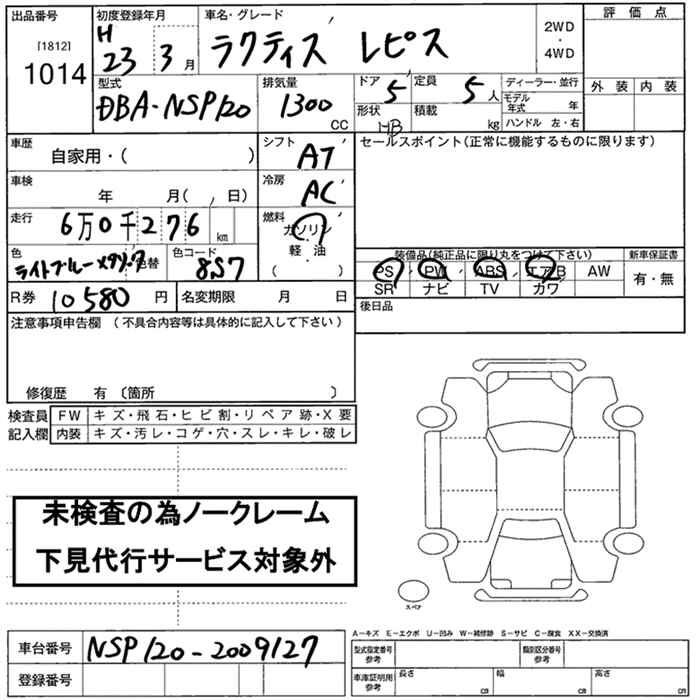 出品番号 初度登録年月 車名・グレード 評価点
[1812] H 2WD
1014 23 3月 ラクティス レピス ・
4WD
型式 排気量 ドア 5 定員 5人 ディーラー・並行 外装 内装
DBA-NSP120 1300 CC 形状 HB 積載 kg モデル年式 年
ハンドル 左・右
車歴 シフト セールスポイント(正常に機能するものに限ります)
自家用・( ) AT
車検 年 月( , 日) 冷房 AC
走行 6万0千276km 燃料 ガソリン
・
軽・油
( )
色 ライトブルーメタリック 色替 色コード 8S7
装備品(純正品に限り丸をつけて下さい) 新車保証書
PS PW ABS エアB AW 有・無
SR ナビ TV カワ
R券 10580円 名変期限 月 日 後日品
注意事項申告欄 (不具合内容等は具体的に記入して下さい)
修復歴 有 〔箇所 〕
検査員 FW キズ・飛石・ヒビ割・リペア跡・X要
記入欄 内装 キズ・汚レ・コゲ・穴・スレ・キレ・破レ
未検査の為ノークレーム
下見代行サービス対象外
スペア
A-キズ E-エクボ U-凹み W-補修跡 S-サビ C-腐食 XX-交換済
車台番号 NSP120-2009127 型式指定番号 参考 類別区分番号 参考
登録番号 車庫証明用 参考 長さ cm 幅 cm 高さ cm